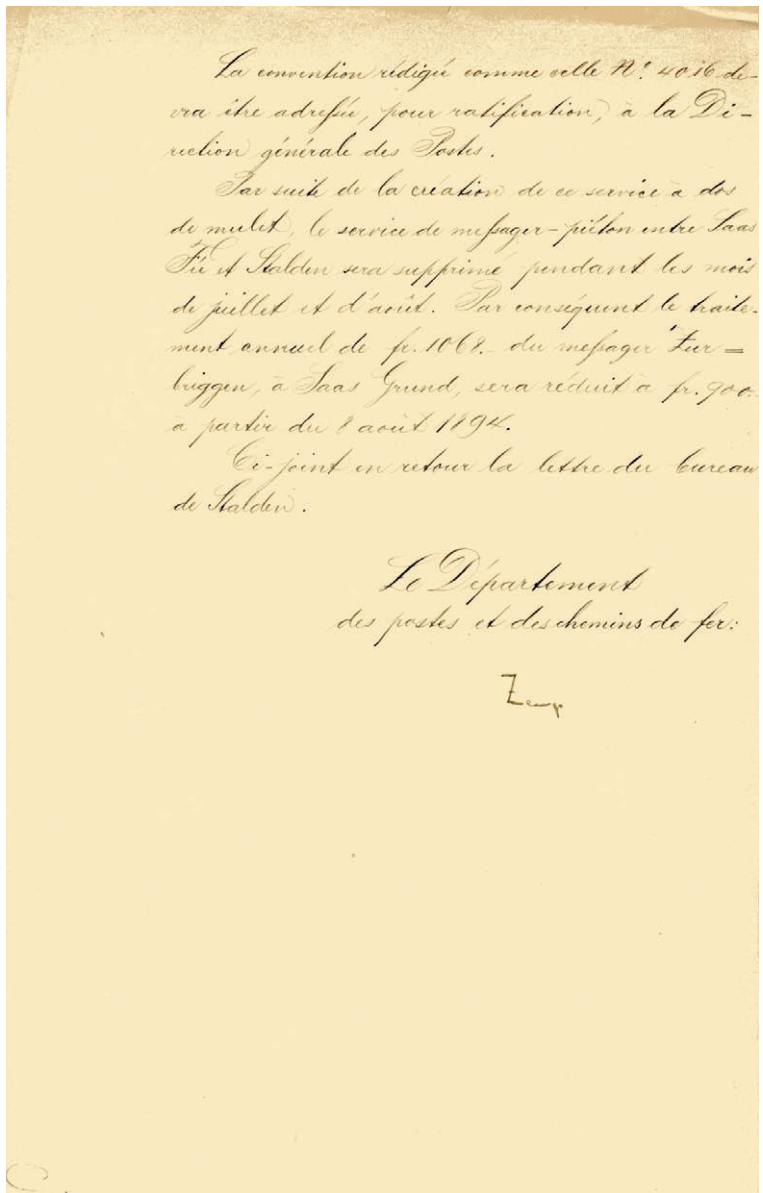 La convention rédigée comme celle N° 4016 de-
vra être adressée, pour ratification, à la Di-
rection générale des Postes.
Par suite de la création de ce service à dos
de mulet, le service de messager-piéton entre Saas
Fée et Stalden sera supprimé pendant les mois
de juillet et d'août. Par conséquent le traite-
ment annuel de fr. 1068.- du messager Zur=
briggen, à Saas Grund, sera réduit à fr. 900.
à partir du 8 août 1894.
Ci-joint en retour la lettre du bureau
de Stalden.
Le Département
des postes et des chemins de fer:
Zemp